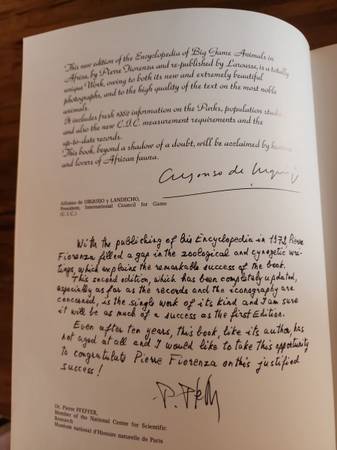 This new edition of the Encyclopedia of Big Game Animals in
Africa, by Pierre Fiorenza and re-published by Larousse, is a totally
unique Work, owing to both its new and extremely beautiful
photographs, and to the high quality of the text on the most noble
animals.
It includes fresh 1982 information on the Parks, population studies
and also the new C.I.C. measurement requirements and the
up-to-date records.
This book, beyond a shadow of a doubt, will be acclaimed by
and lovers of African fauna.
Alfonso de Urquijo
Alfonso de URQUIJO y LANDECHO,
President, International Council for Game
(C.I.C.)
With the publiching of Big Encyclopedia in 1972, Pierre
Fiorenza filled a gap in the zoological and cynegetic wri-
tings, which explains the remarkable success of the book.
This second edition, which has been completely updated,
especially as far as the records and the iconography are
concerned, is the single work of its kind and I am sure
it will be as much of a success as the first Edition.
Even after ten years, this book, like its author, has
not aged at all and I would like to take this opportunity
to congratulate Pierre Fiorenza on this justified
success!
Dr. Pierre PFEFFER,
Member of the National Center for Scientific
Research
Muséum national d'Histoire naturelle de Paris